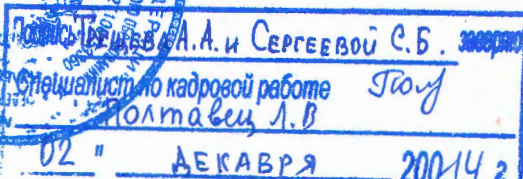 Подпись Трещёва А.А. и Сергеевой С.Б. заверяю
Специалист по кадровой работе
Полтавец Л.В
02 " ДЕКАБРЯ 20014 г